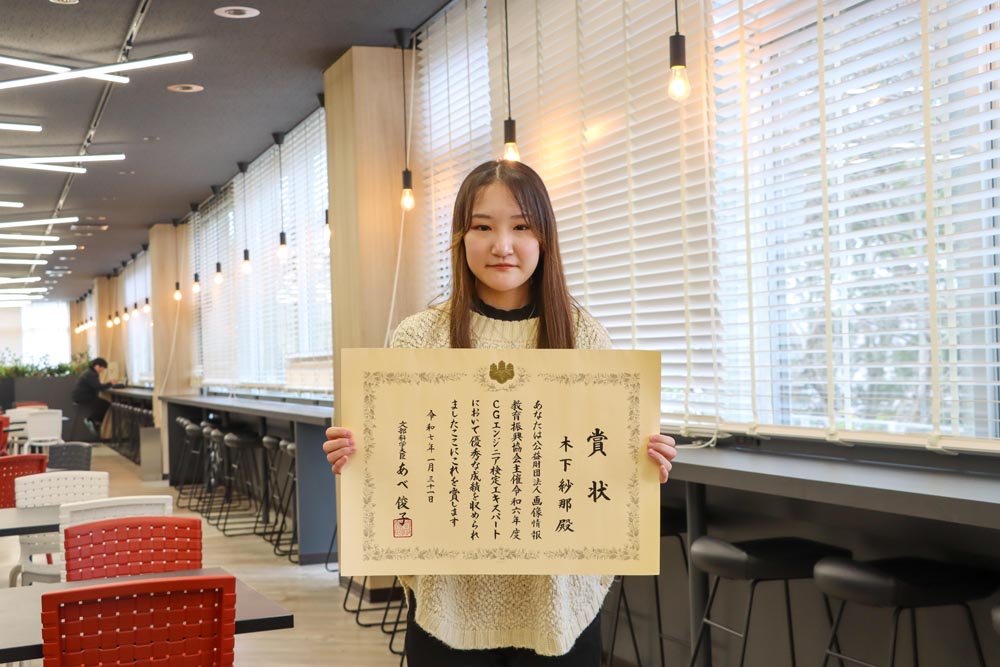 賞状
木下紗那殿
あなたは公益財団法人画像情報
教育振興協会主催令和六年度
CGエンジニア検定エキスパート
において優秀な成績を収められ
ましたここにこれを賞します
令和七年一月三十一日
文部科学大臣 あべ俊子